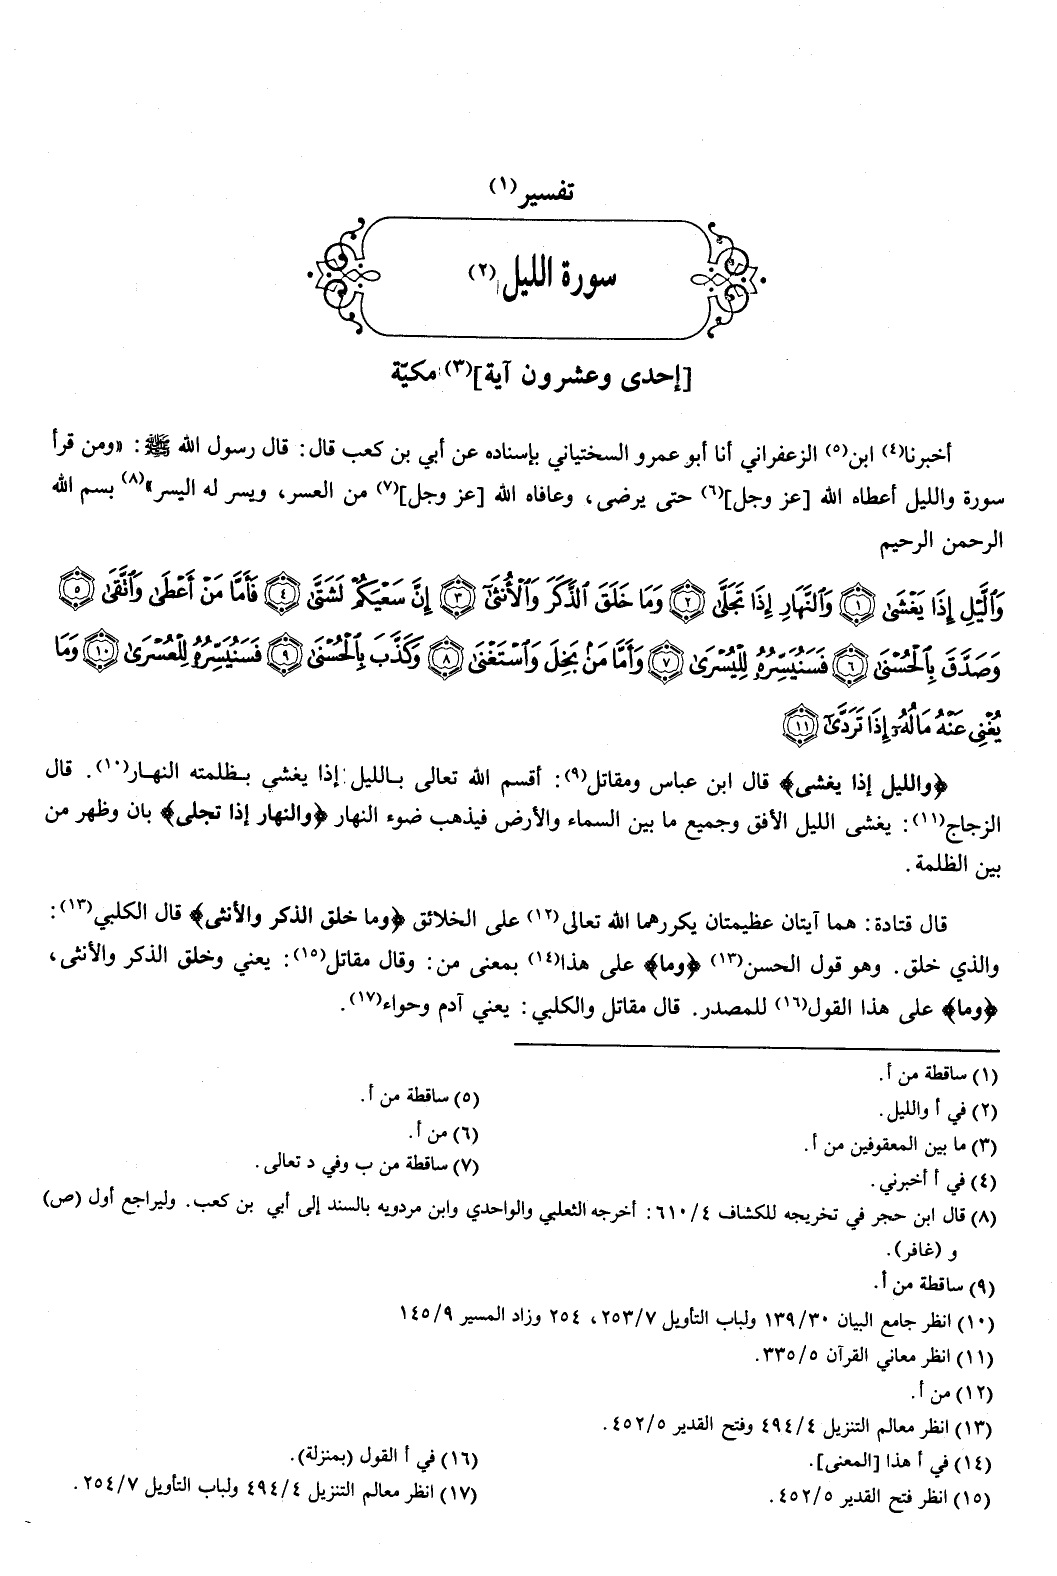 تفسير(١)
سورة الليل(٢)
[إحدى وعشرون آية](٣) مكيّة
أخبرنا(٤) ابن(٥) الزعفراني أنا أبو عمرو السختياني بإسناده عن أبي بن كعب قال: قال رسول الله ﷺ: «ومن قرأ
سورة والليل أعطاه الله [عز وجل](٦) حتى يرضى، وعافاه الله [عز وجل](٧) من العسر، ويسر له اليسر»(٨) بسم الله
الرحمن الرحيم
وَٱلَّيْلِ إِذَا يَغْشَىٰ ١ وَٱلنَّهَارِ إِذَا تَجَلَّىٰ ٢ وَمَا خَلَقَ ٱلذَّكَرَ وَٱلْأُنثَىٰٓ ٣ إِنَّ سَعْيَكُمْ لَشَتَّىٰ ٤ فَأَمَّا مَنْ أَعْطَىٰ وَٱتَّقَىٰ ٥
وَصَدَّقَ بِٱلْحُسْنَىٰ ٦ فَسَنُيَسِّرُهُۥ لِلْيُسْرَىٰ ٧ وَأَمَّا مَنۢ بَخِلَ وَٱسْتَغْنَىٰ ٨ وَكَذَّبَ بِٱلْحُسْنَىٰ ٩ فَسَنُيَسِّرُهُۥ لِلْعُسْرَىٰ ١٠ وَمَا
يُغْنِى عَنْهُ مَالُهُۥٓ إِذَا تَرَدَّىٰٓ ١١
﴿والليل إذا يغشى﴾ قال ابن عباس ومقاتل(٩): أقسم الله تعالى بالليل إذا يغشي بظلمته النهار(١٠). قال
الزجاج(١١): يغشى الليل الأفق وجميع ما بين السماء والأرض فيذهب ضوء النهار ﴿والنهار إذا تجلى﴾ بان وظهر من
بين الظلمة.
قال قتادة: هما آيتان عظيمتان يكررهما الله تعالى(١٢) على الخلائق ﴿وما خلق الذكر والأنثى﴾ قال الكلبي(١٣):
والذي خلق. وهو قول الحسن(١٣) ﴿وما﴾ على هذا(١٤) بمعنى من: وقال مقاتل(١٥): يعني وخلق الذكر والأنثى،
﴿وما﴾ على هذا القول(١٦) للمصدر. قال مقاتل والكلبي: يعني آدم وحواء(١٧).
(١) ساقطة من أ.
(٢) في أ والليل.
(٣) ما بين المعقوفين من أ.
(٤) في أ أخبرني.
(٥) ساقطة من أ.
(٦) من أ.
(٧) ساقطة من ب وفي د تعالى.
(٨) قال ابن حجر في تخريجه للكشاف ٦١٠/٤: أخرجه الثعلبي والواحدي وابن مردويه بالسند إلى أبي بن كعب. وليراجع أول (ص)
و (غافر).
(٩) ساقطة من أ.
(١٠) انظر جامع البيان ١٣٩/٣٠ ولباب التأويل ٢٥٣/٧، ٢٥٤ وزاد المسير ١٤٥/٩
(١١) انظر معاني القرآن ٣٣٥/٥.
(١٢) من أ.
(١٣) انظر معالم التنزيل ٤٩٤/٤ وفتح القدير ٤٥٢/٥.
(١٤) في أ هذا [المعنى].
(١٥) انظر فتح القدير ٤٥٢/٥.
(١٦) في أ القول (بمنزلة).
(١٧) انظر معالم التنزيل ٤٩٤/٤ ولباب التأويل ٢٥٤/٧.